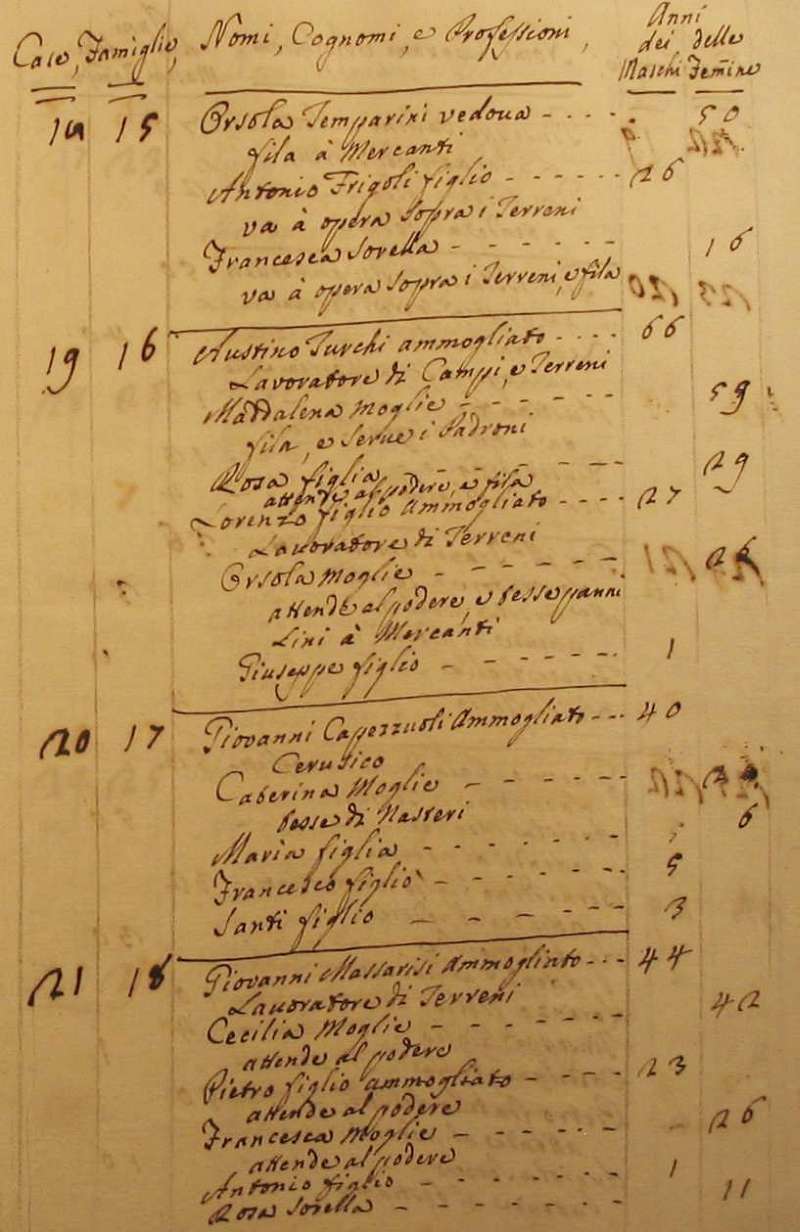 Case, Famiglie, Nomi, Cognomi, e Professioni, Anni dei Maschi delle Femine
15 Orsola Temparini vedova 50
fila à Mercanti
Antonio Frigoli figlio 26
va à opera sopra i Terreni
Francesca Sorella 16
va à opera sopra i Terreni, e fila
19 16 Austino Turchi ammogliato 66
Lavoratore di Campi, e Terreni
Maddalena Moglie 59
fila, e serve i Padroni
Rosa figlia 29
attende al podere, e fila
Lorenzo figlio Ammogliato 27
Lavoratore di Terreni
Orsola Moglie 26
attende al podere, e tesse panni
Lini à Mercanti
Giuseppe figlio 1
20 17 Giovanni Capezzuoli Ammogliato 40
Cerusico
Caterina Moglie
tesse di Nasteri
Maria figlia 6
Francesco figlio 5
Santi figlio 3
21 18 Giovanni Massarisi Ammogliato 44
Lavoratore di Terreni
Cecilia Moglie 42
attende al podere
Pietro figlio ammogliato 23
attende al podere
Francesca Moglie 26
attende al podere
Antonio figlio 1
Rosa Sorella 11